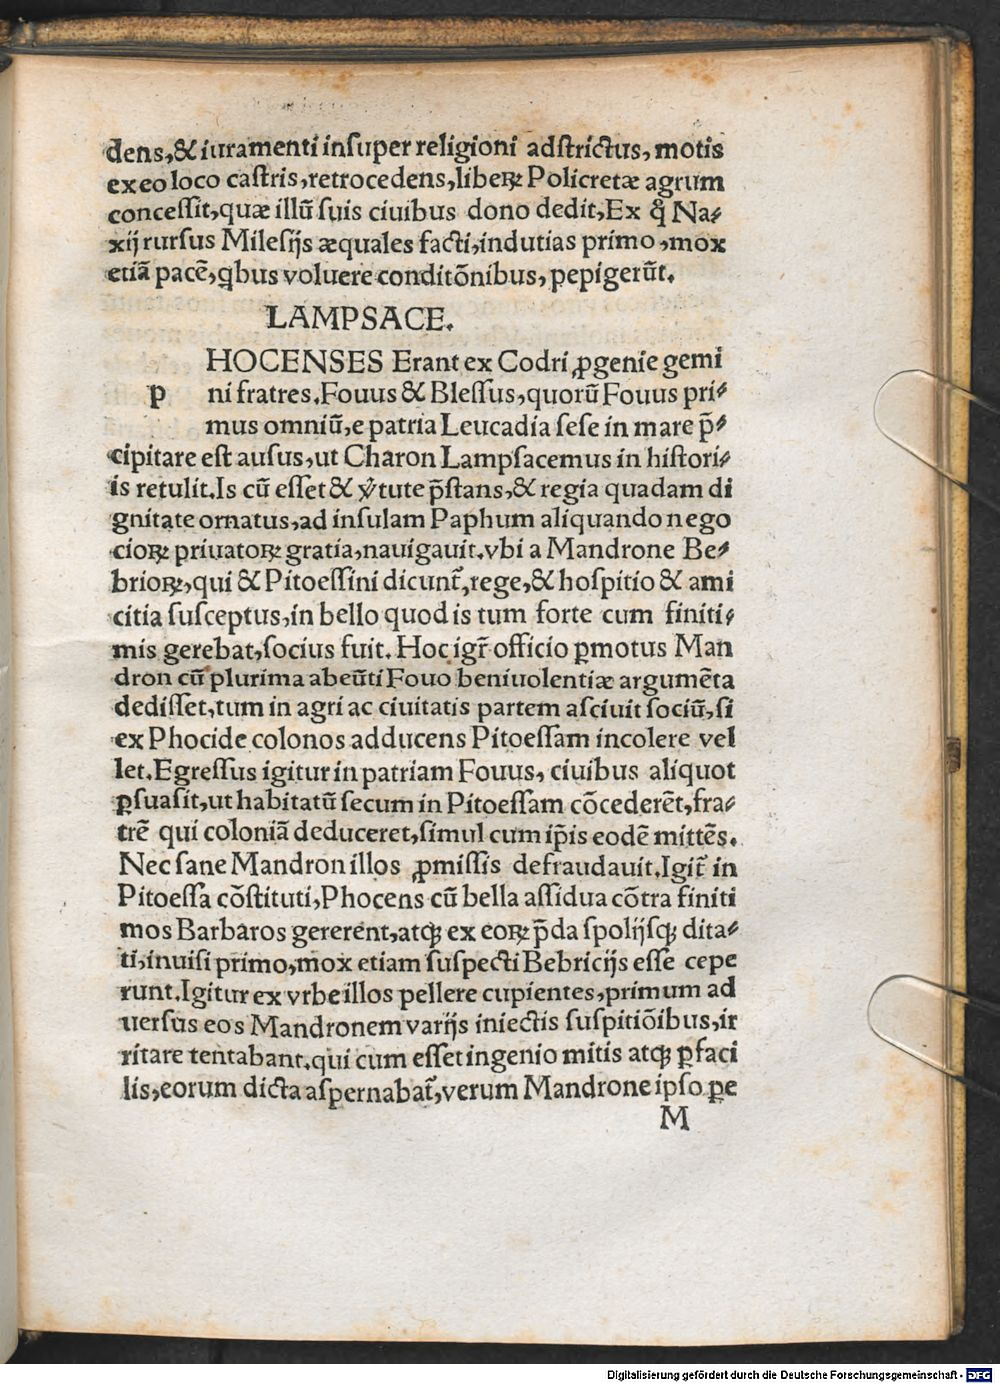 dens,&iuramenti insuper religioni adstrictus, motis
ex eo loco castris, retrocedens, liberꝝ Policretæ agrum
concessit, quæ illũ suis ciuibus dono dedit, Ex q̃ Na⸗
xij rursus Milesijs æquales facti, indutias primo, mox
etiã pacẽ, qbus voluere conditõnibus, pepigerũt.
LAMPSACE.
HOCENSES Erant ex Codri ꝓgenie gemi
p ni fratres. Fouus & Blessus, quorũ Fouus pri⸗
mus omniũ, e patria Leucadia sese in mare p̃⸗
cipitare est ausus, ut Charon Lampsacemus in histori⸗
is retulit. Is cũ esset & ṽtute p̃stans, & regia quadam di
gnitate ornatus, ad insulam Paphum aliquando nego
cioꝝ priuatoꝝ gratia, nauigauit. vbi a Mandrone Be⸗
brioꝝ, qui & Pitoessini dicunt̃, rege, & hospitio & ami
citia susceptus, in bello quod is tum forte cum finiti⸗
mis gerebat, socius fuit. Hoc igr̃ officio ꝑmotus Man
dron cũ plurima abeũti Fouo beniuolentiæ argumẽta
dedisset, tum in agri ac ciuitatis partem asciuit sociũ, si
ex Phocide colonos adducens Pitoessam incolere vel
let. Egressus igitur in patriam Fouus, ciuibus aliquot
ꝑsuasit, ut habitatũ secum in Pitoessam cõcederẽt, fra⸗
trẽ qui coloniã deduceret, simul cum ip̃is eodẽ mittẽs.
Nec sane Mandron illos ꝓmissis defraudauit. Igit̃ in
Pitoessa cõstituti, Phocens cũ bella assidua cõtra finiti
mos Barbaros gererent, atqꝫ ex eoꝝ p̃da spolijsqꝫ dita⸗
ti, inuisi primo, mox etiam suspecti Bebricijs esse cepe
runt. Igitur ex vrbe illos pellere cupientes, primum ad
uersus eos Mandronem varijs iniectis suspitiõibus, ir
ritare tentabant. qui cum esset ingenio mitis atqꝫ ꝑfaci
lis, eorum dicta aspernabat̃, verum Mandrone ipso ꝑe
M
Digitalisierung gefördert durch die Deutsche Forschungsgemeinschaft - DFG